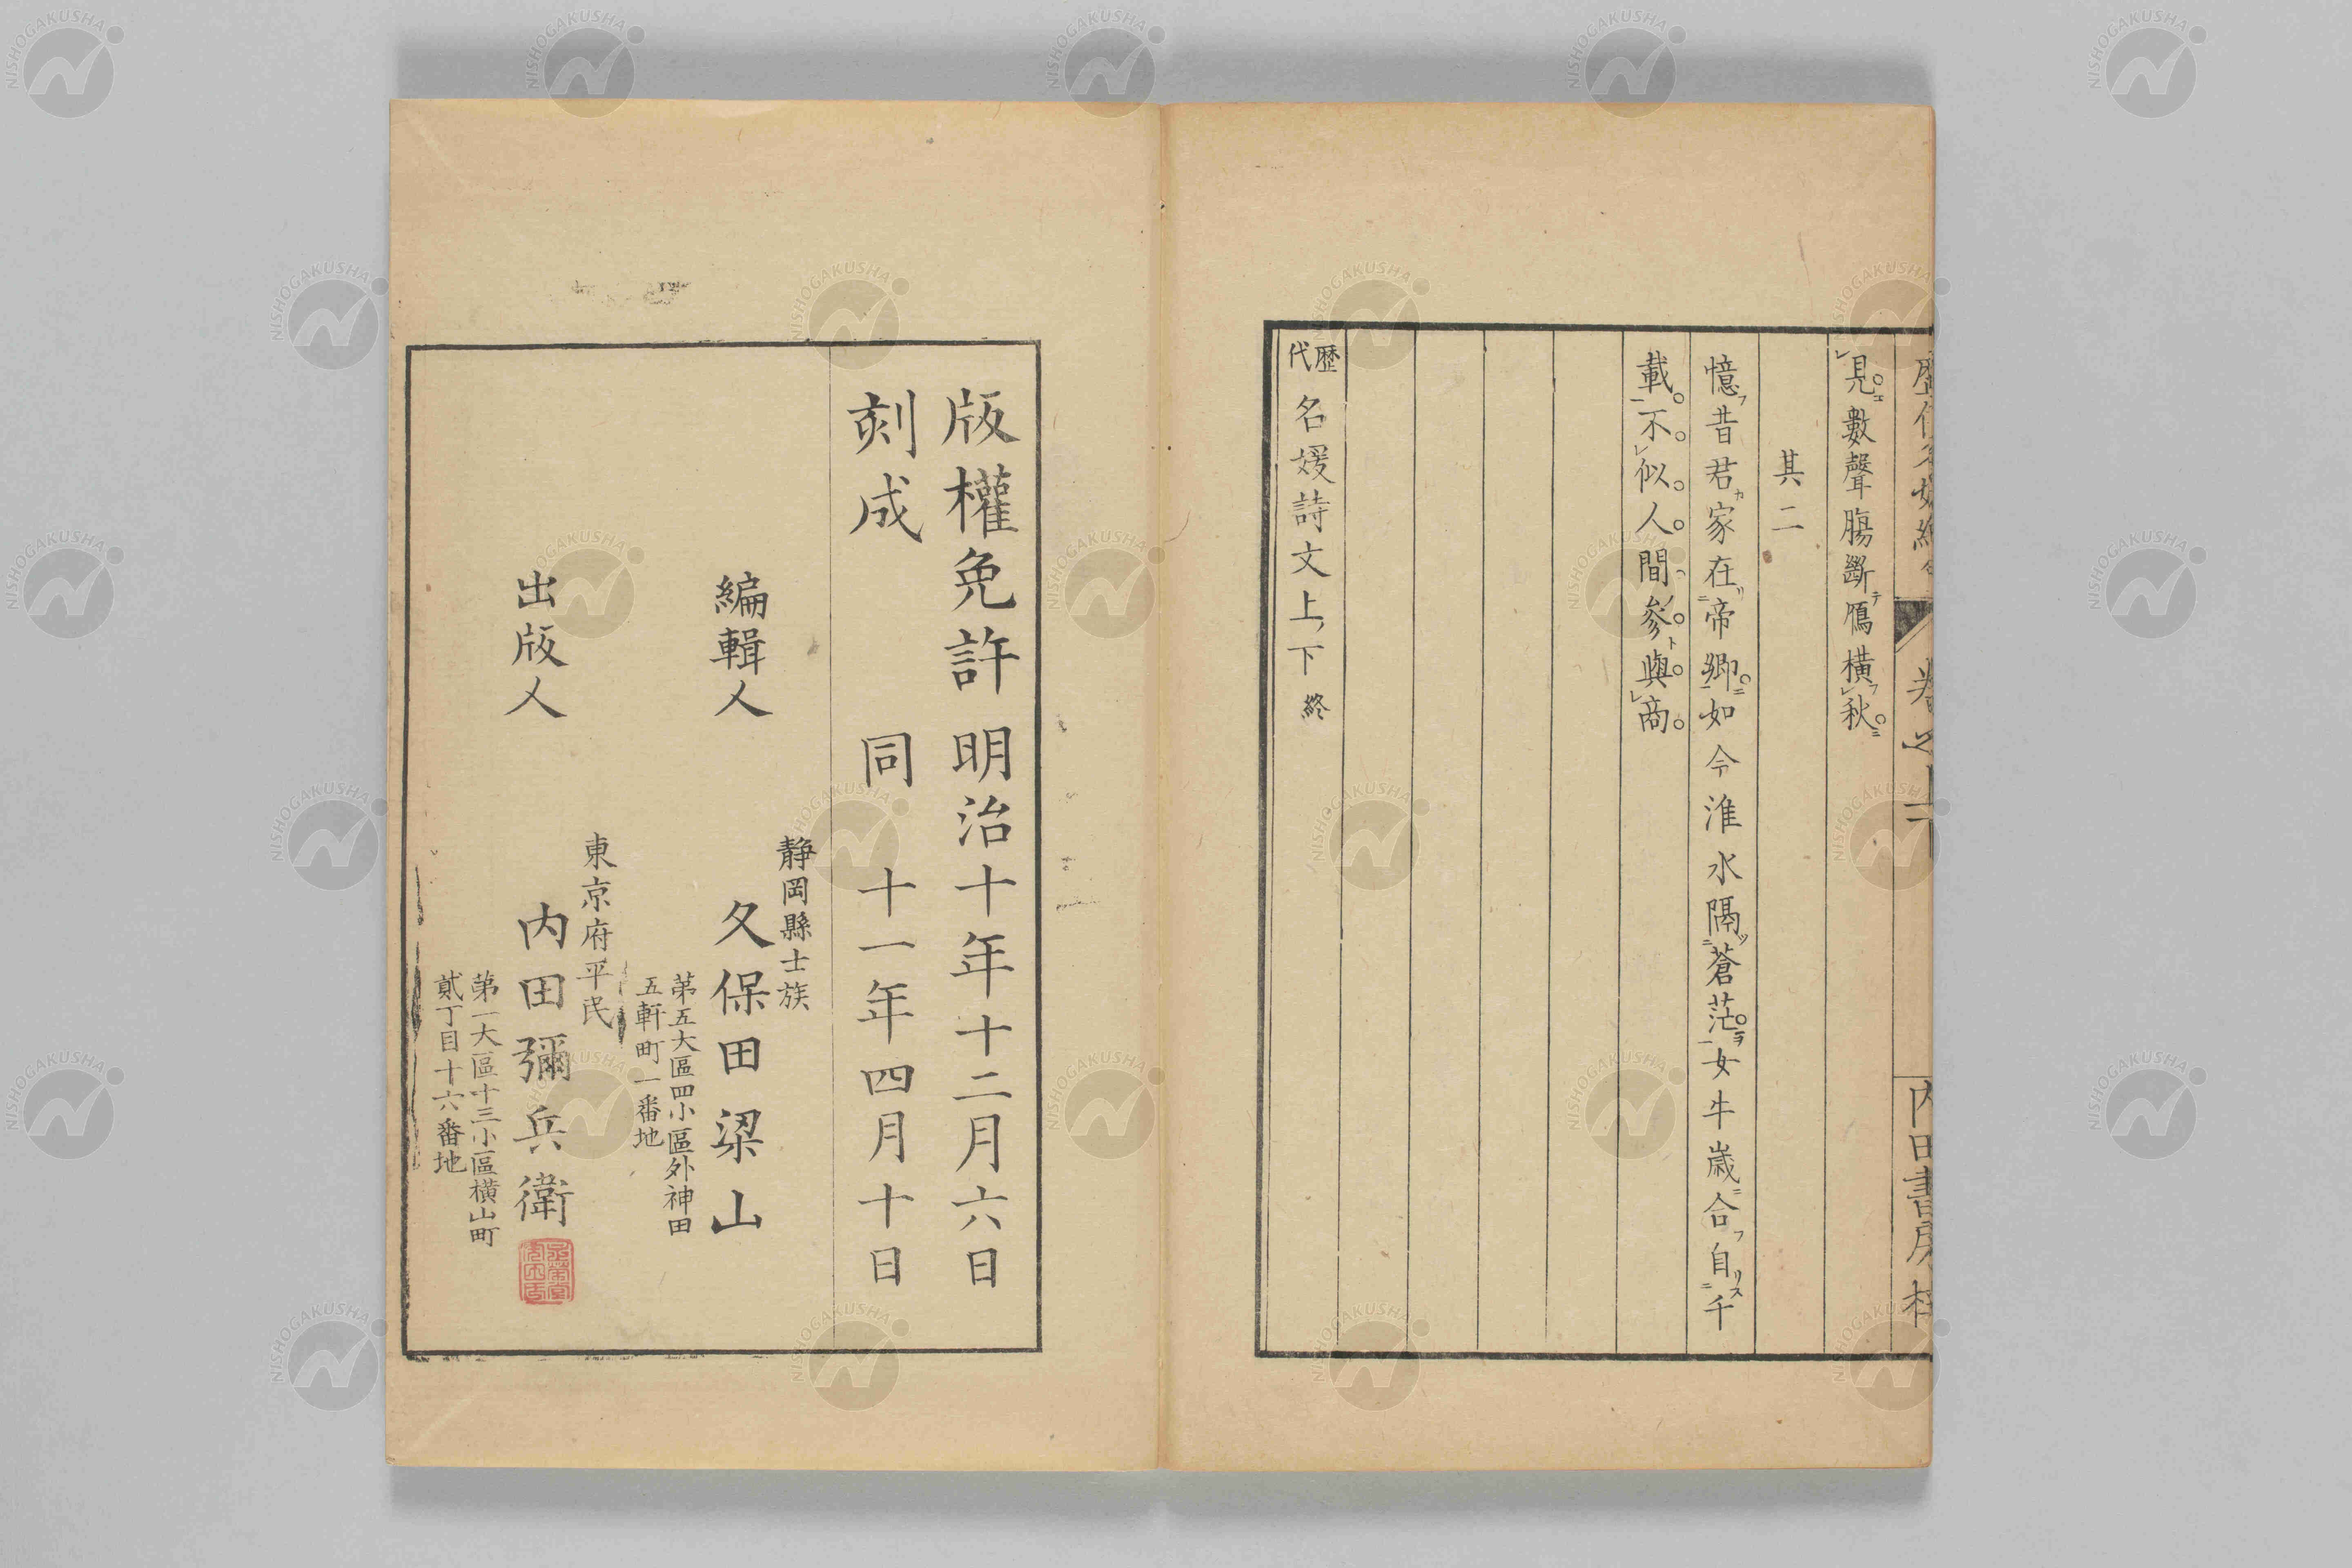 見數聲膓斷鴈橫秋
其二
憶昔君家在帝鄉如今淮水隔蒼茫女牛歲合自千
載不似人間參與商
歷代名媛詩文上下終
版權免許 明治十年十二月六日
刻成 同 十一年四月十日
編輯人
靜岡縣士族
久保田梁山
苐五大區四小區外神田
五軒町一番地
出版人
東京府平民
内田彌兵衛
苐一大區十三小區橫山町
貳丁目十六番地
NISHOGAKUSHA